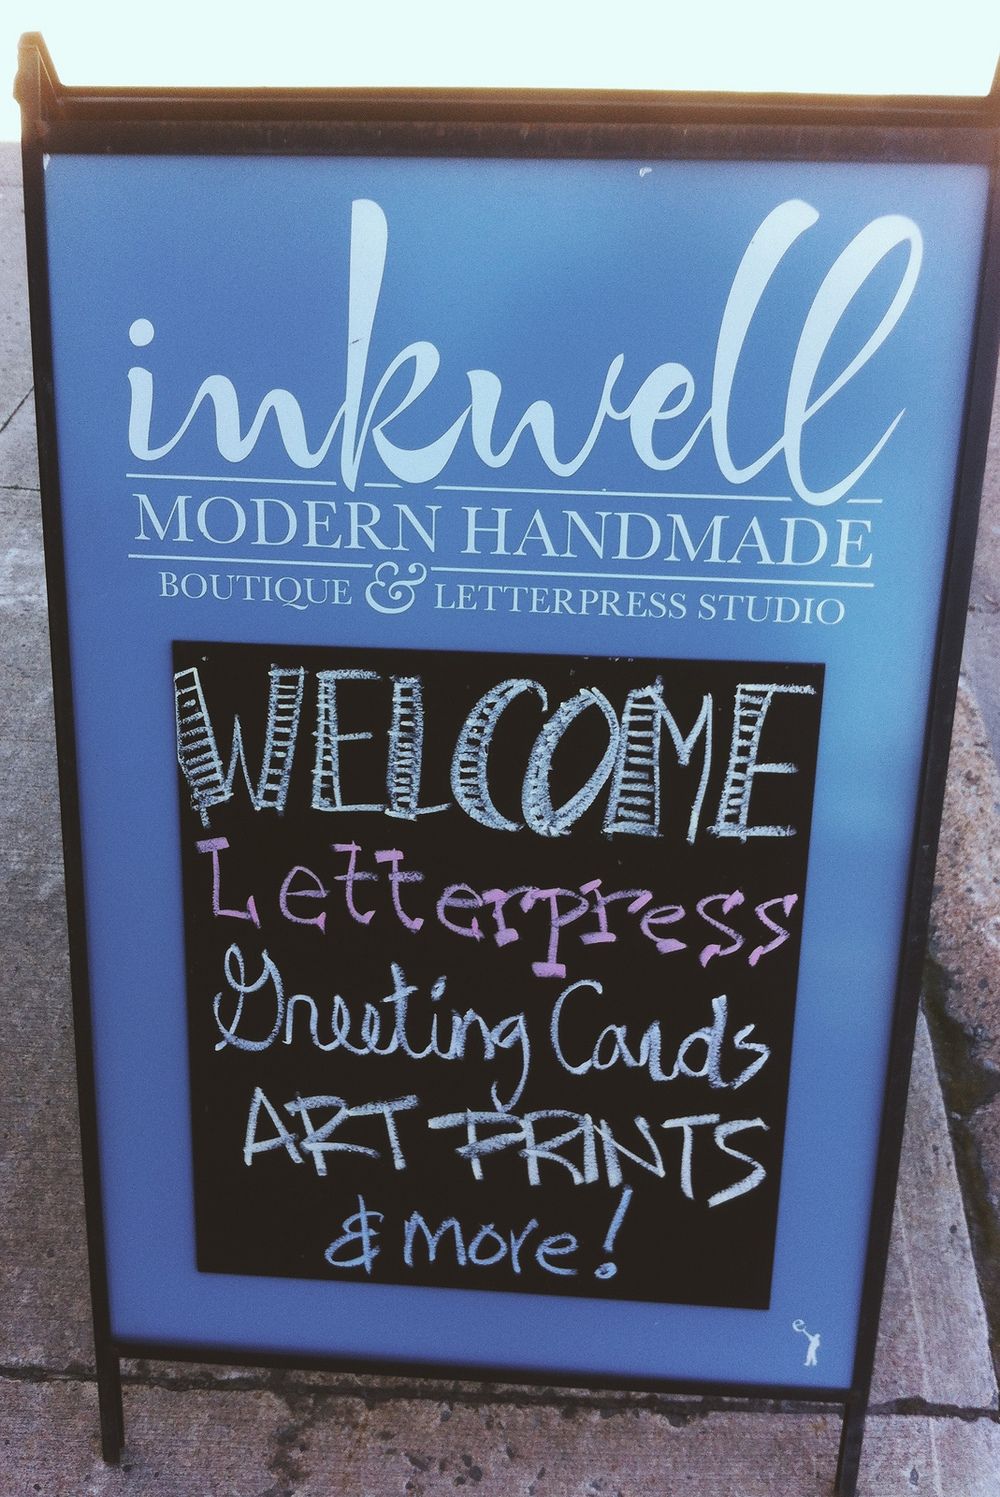 inkwell
MODERN HANDMADE
BOUTIQUE & LETTERPRESS STUDIO
WELCOME
Letterpress
Greeting Cards
ART PRINTS
& more!
e